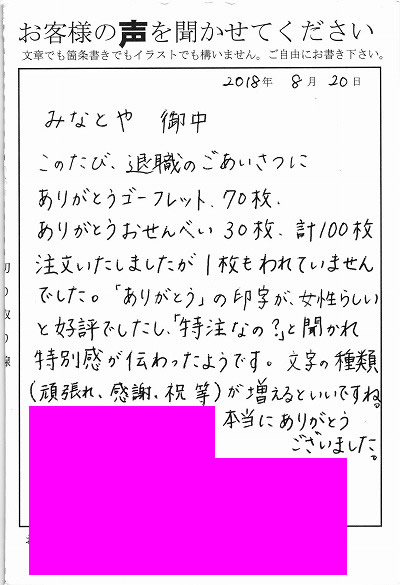 お客様の声を聞かせてください
文章でも箇条書きでもイラストでも構いません。ご自由にお書き下さい。
2018年 8月 20日
みなとや 御中
このたび、退職のごあいさつに
ありがとうゴーフレット、70枚、
ありがとうおせんべい 30枚、計100枚
注文いたしましたが 1枚もわれていません
でした。「ありがとう」の印字が、女性らしい
と好評でしたし、「特注なの?」と聞かれ
特別感が伝わったようです。文字の種類
(頑張れ、感謝、祝 等)が増えるといいですね。
本当にありがとう
ございました。